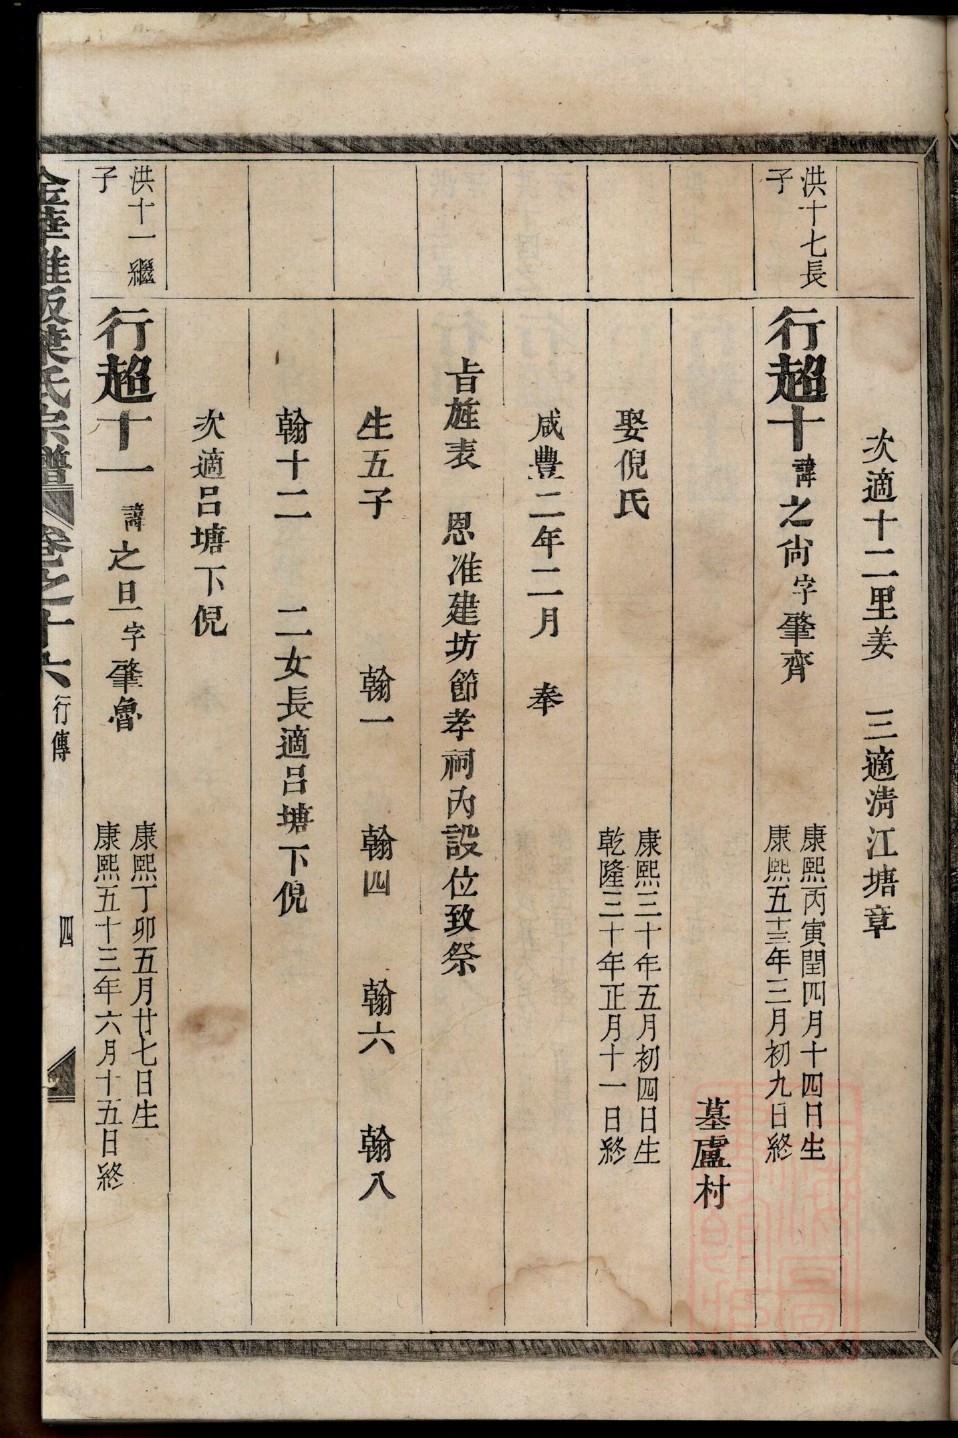 次適十二里姜　三適清江塘章
洪十七長子
行超十諱之尙字肇齊
康熙丙寅閏四月十四日生
康熙五十三年三月初九日終
墓盧村
娶倪氏
康熙三十年五月初四日生
乾隆三十年正月十一日終
咸豐二年二月　奉
旨旌表　恩准建坊節孝祠內設位致祭
生五子　翰一　翰四　翰六　翰八
翰十二　二女長適呂塘下倪
次適呂塘下倪
洪十一繼子
行超十一諱之旦字肇魯
康熙丁卯五月廿七日生
康熙五十三年六月十五日終
卷之十六
行傳
四